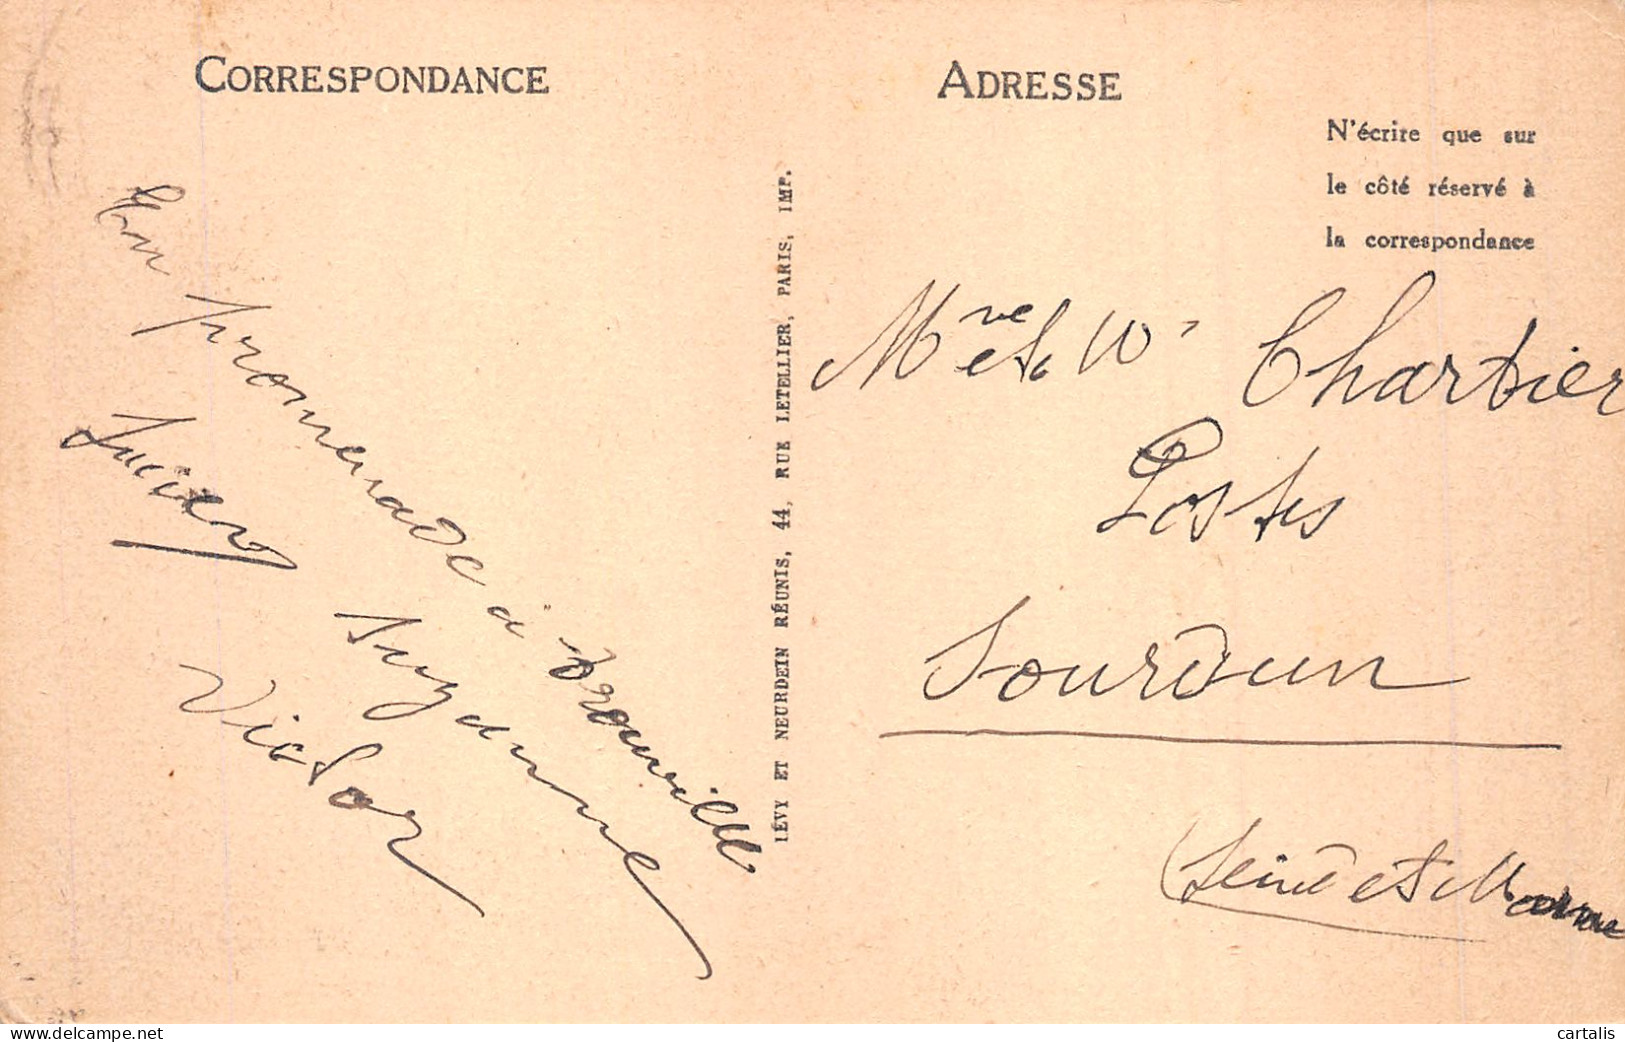 CORRESPONDANCE
En promenade à Trouville
Lucien
Suzanne
Victor
LÉVY ET NEURDEIN RÉUNIS, 44, RUE LETELLIER, PARIS, IMP.
ADRESSE
N'écrire que sur
le côté réservé à
la correspondance
Mr et Chartier
Postes
Sourdun
(Seine et Marne
delcampe.net
cartalis